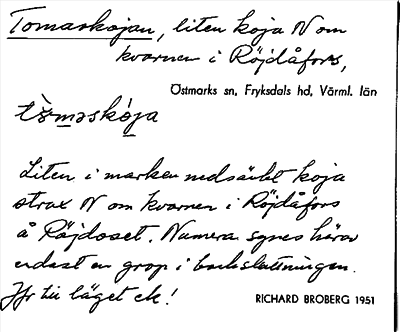 Tomaskojan, liten koja N om
kvarnen i Röjdåfors,
Östmarks sn, Fryksdals hd, Värml. län
Liten i marken nedsänkt koja
strax N om kvarnen i Röjdåfors
å Röjdoset. Numera synes härav
endast en grop i backsluttningen.
Jfr till läget ek!
RICHARD BROBERG 1951